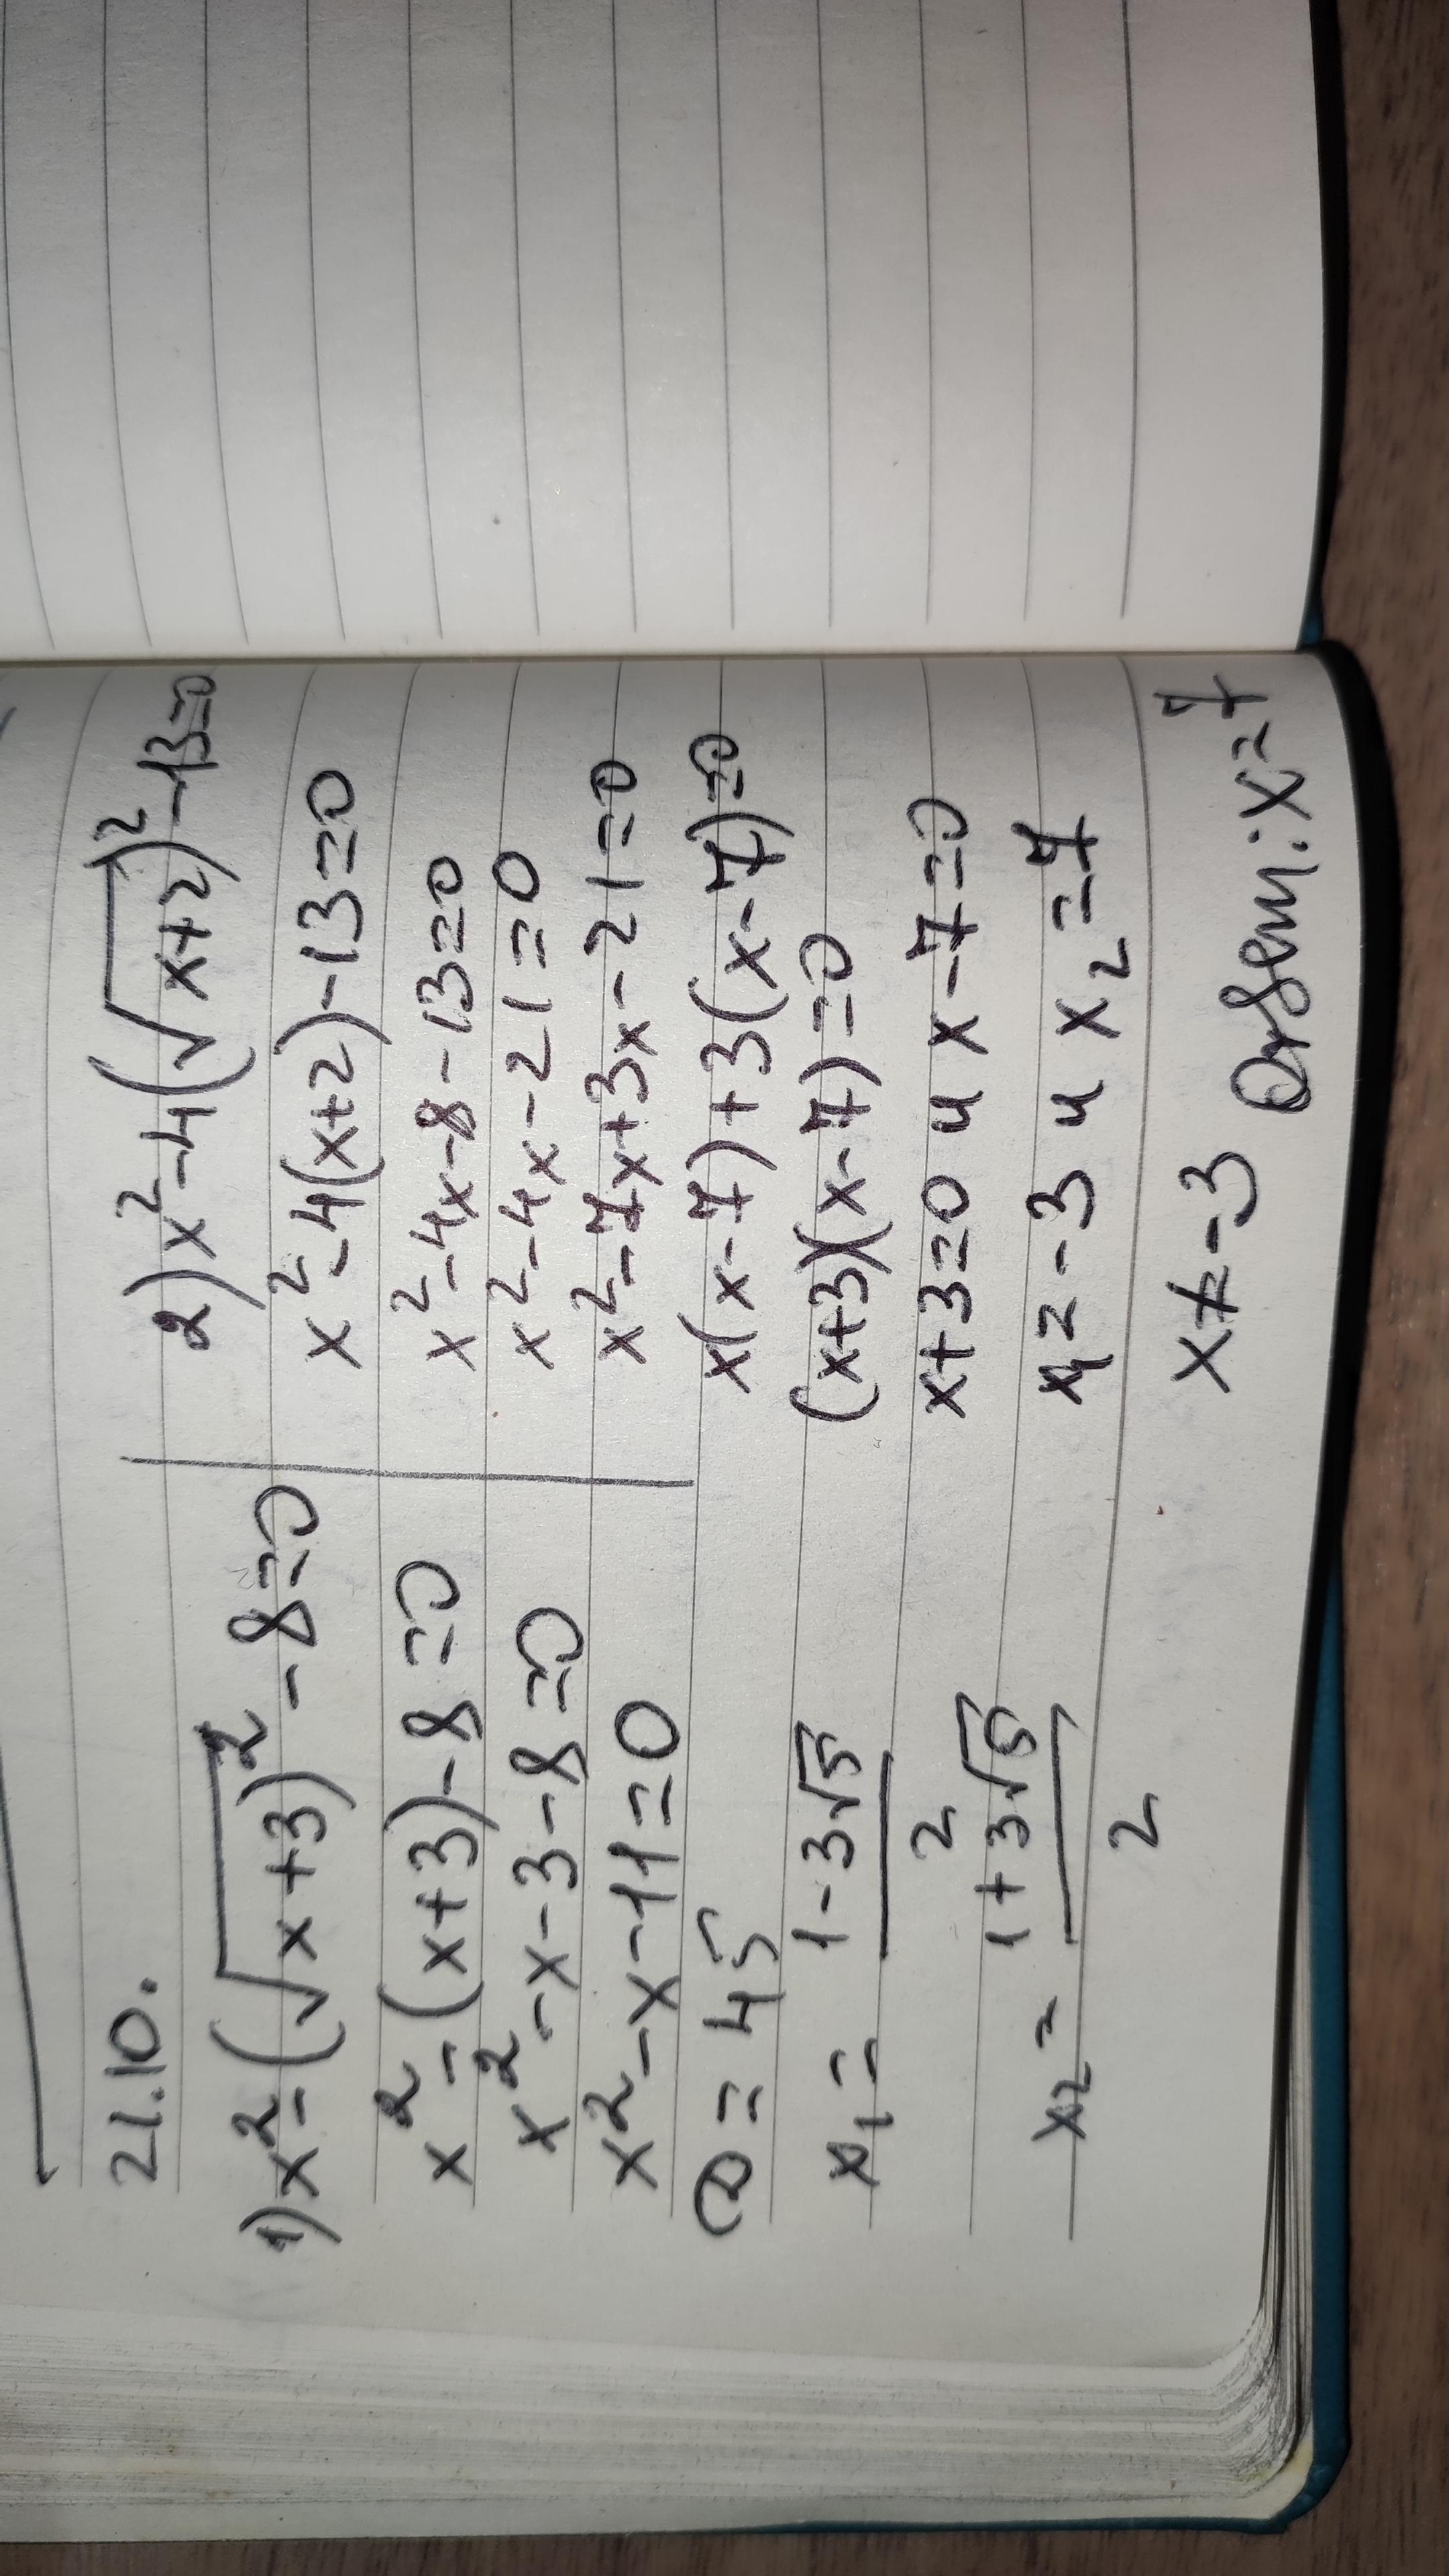 21.10.
1) x² - (√x+3)² - 8 = 0
x² - (x+3) - 8 = 0
x² - x - 3 - 8 = 0
x² - x - 11 = 0
D = 45
x₁ = (1 - 3√5)/2
x₂ = (1 + 3√5)/2
2) x² - 4(√x+2)² - 13 = 0
x² - 4(x+2) - 13 = 0
x² - 4x - 8 - 13 = 0
x² - 4x - 21 = 0
x² - 7x + 3x - 21 = 0
x(x-7) + 3(x-7) = 0
(x+3)(x-7) = 0
x+3=0 и x-7=0
x₁ = -3 и x₂ = 7
x ≠ -3 Ответ: x=7